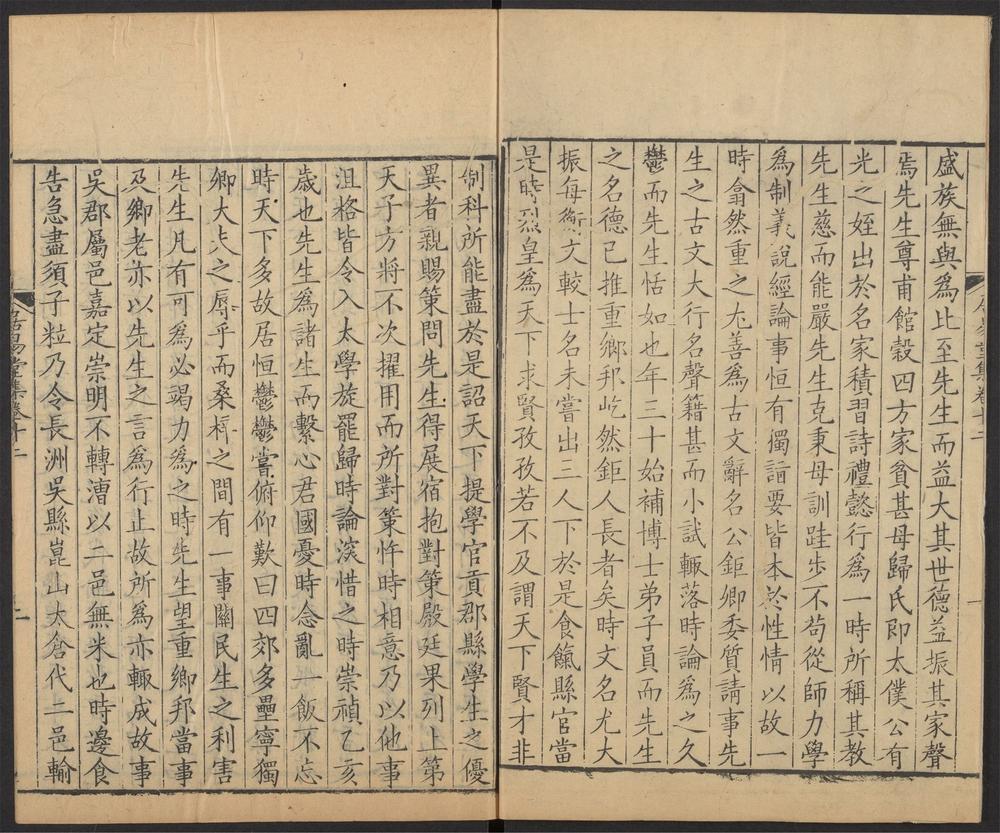 盛族無與為比至先生而益大其世德益振其家聲
焉先生尊甫館穀四方家貧甚母歸氏即太僕公有
光之姪出於名家積習詩禮懿行為一時所稱其教
先生慈而能嚴先生克秉母訓跬步不苟從師力學
為制義說經論事恒有獨詣要皆本於性情以故一
時翕然重之尤善為古文辭名公鉅卿委質請事先
生之古文大行名聲籍甚而小試輒落時論為之久
鬱而先生恬如也年三十始補博士弟子員而先生
之名德已推重鄉邦屹然鉅人長者矣時文名尤大
振每衡文較士名未嘗出三人下於是食餼縣官當
是時烈皇為天下求賢孜孜若不及謂天下賢才非
居易堂集卷十二
制科所能盡於是詔天下提學官貢郡縣學生之優
異者親賜策問先生得展宿抱對策殿廷果列上第
天子方將不次擢用而所對策忤時相意乃以他事
沮格皆令入太學旋罷歸時論深惜之時崇禎乙亥
歲也先生為諸生而繫心君國憂時念亂一飯不忘
時天下多故居恒鬱鬱嘗俯仰歎曰四郊多壘寧獨
卿大夫之辱乎而桑梓之間有一事關民生之利害
先生凡有可為必竭力為之時先生望重鄉邦當事
及鄉老亦以先生之言為行止故所為亦輒成故事
吳郡屬邑嘉定崇明不轉漕以二邑無米也時邊食
告急盡須子粒乃令長洲吳縣崑山太倉代二邑輸
居易堂集卷十二